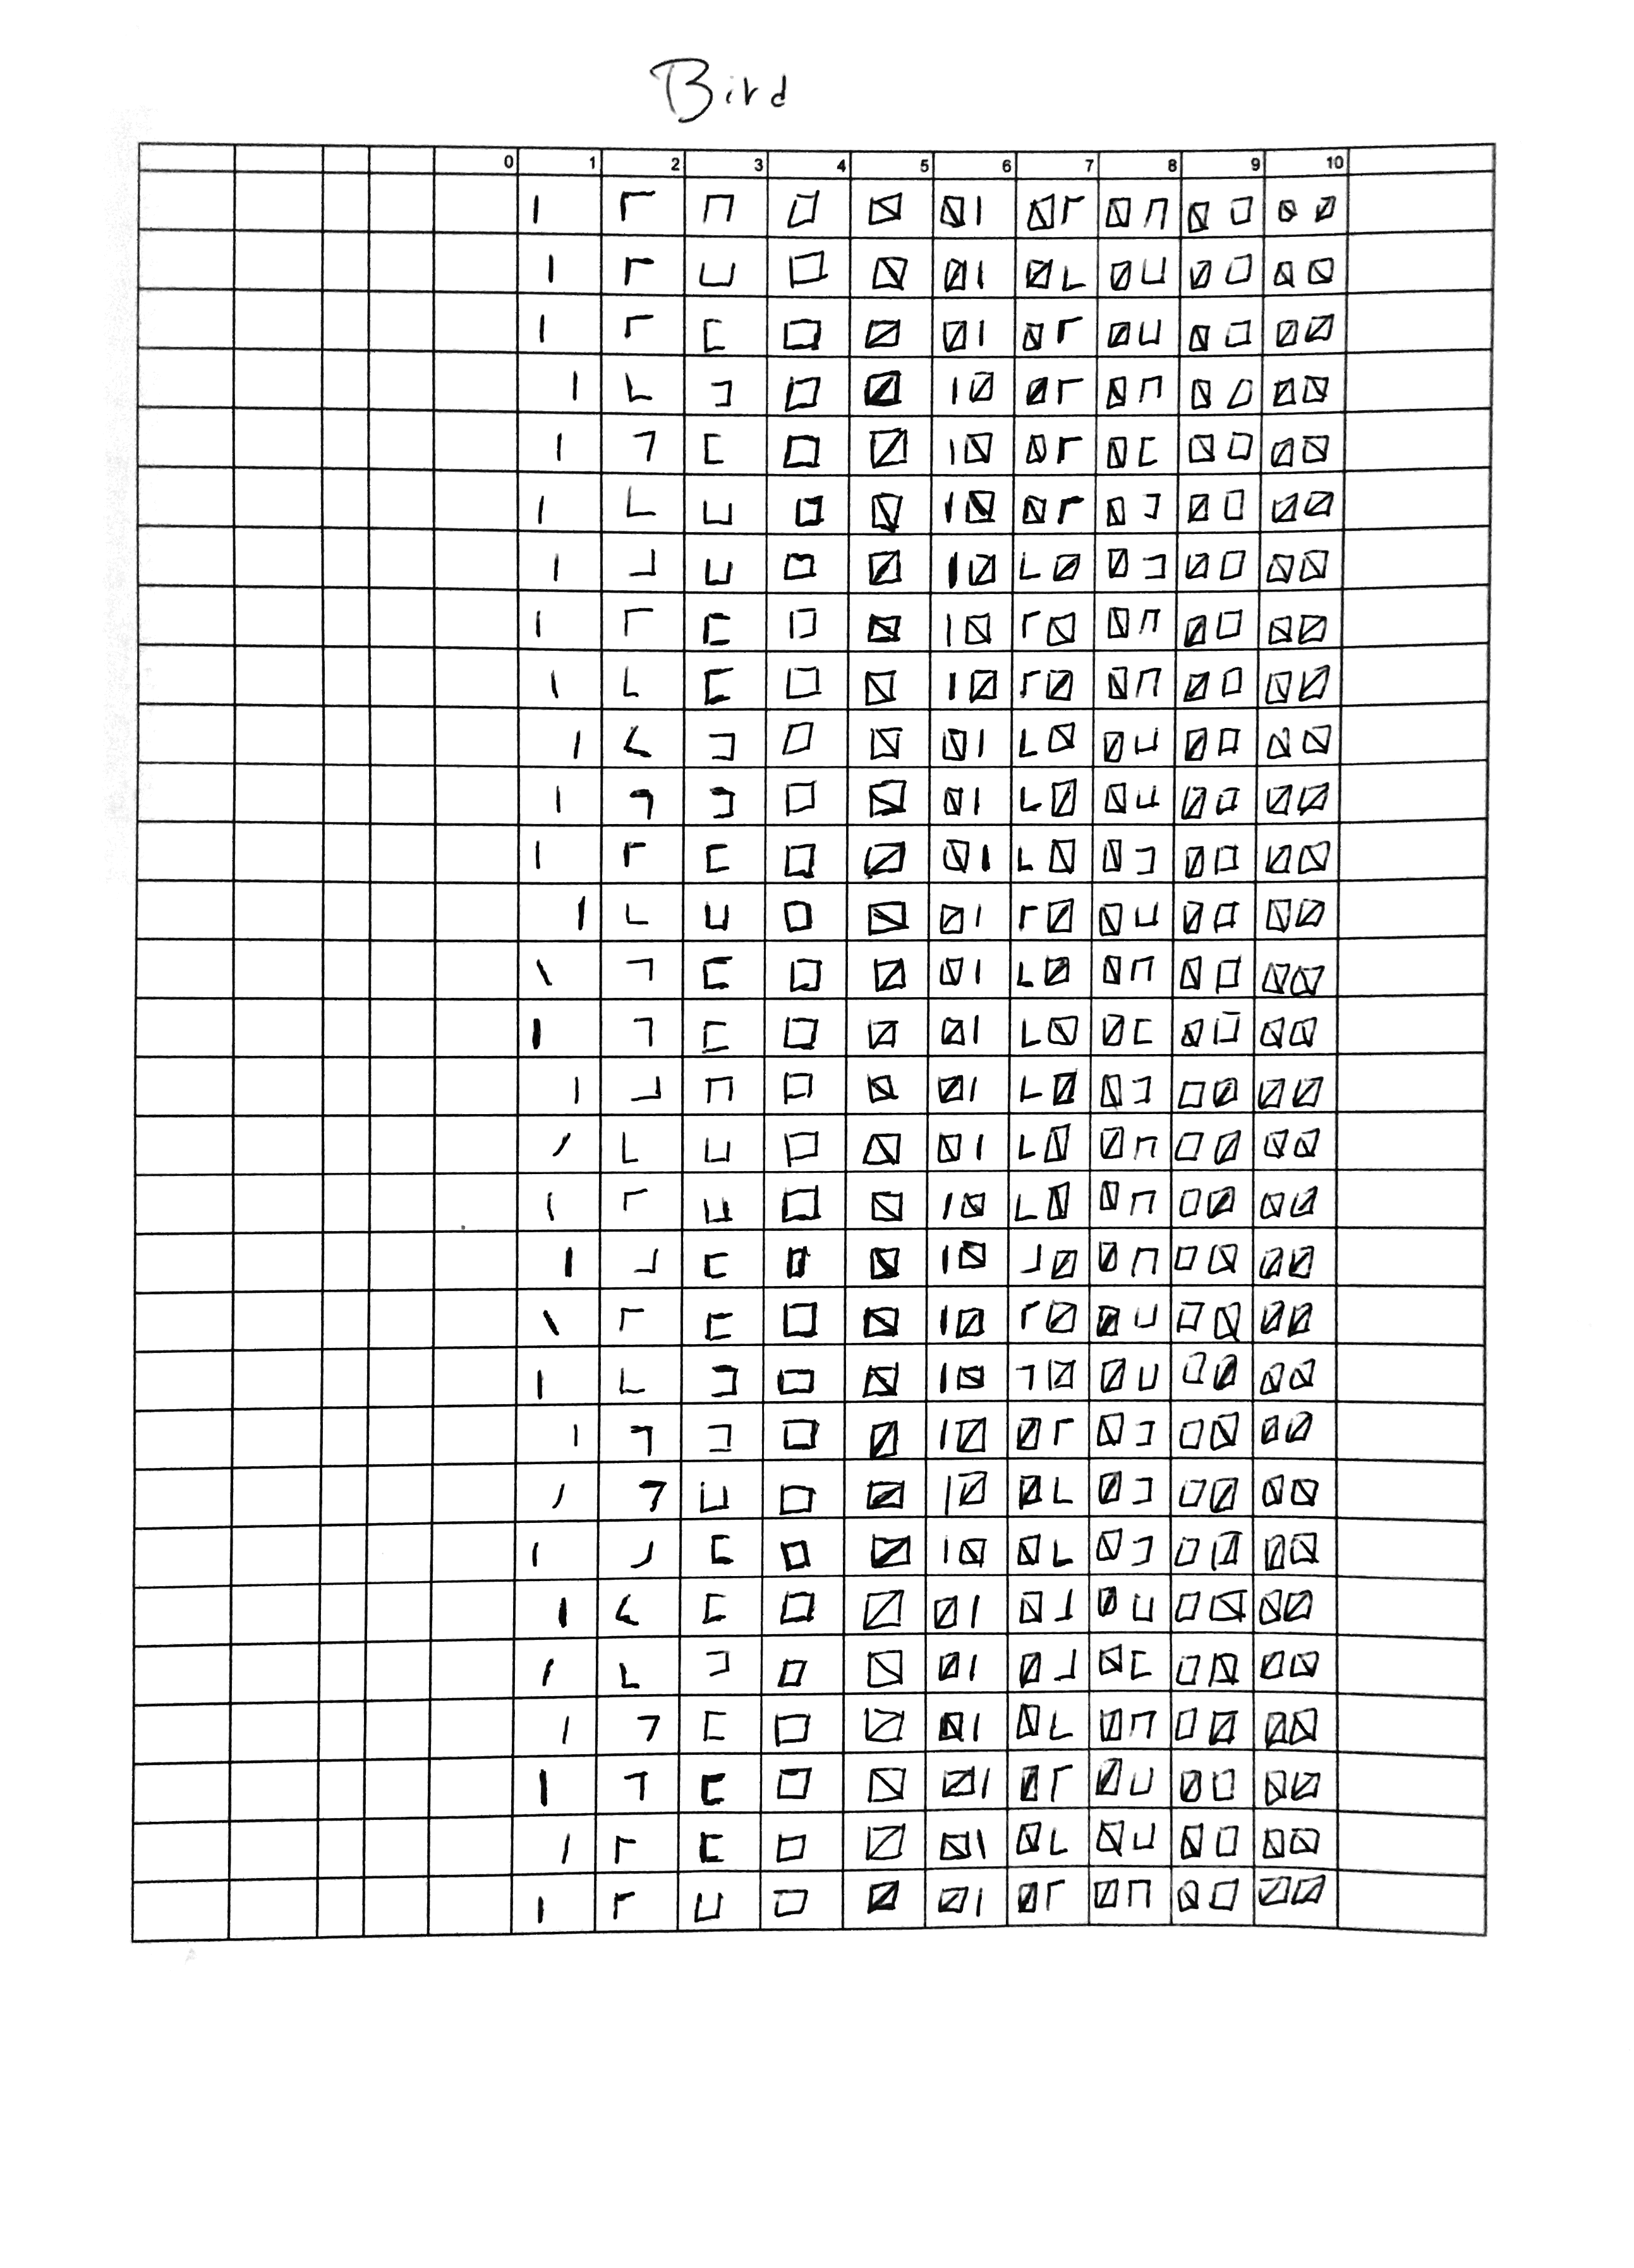 Bird
0 1 2 3 4 5 6 7 8 9 10